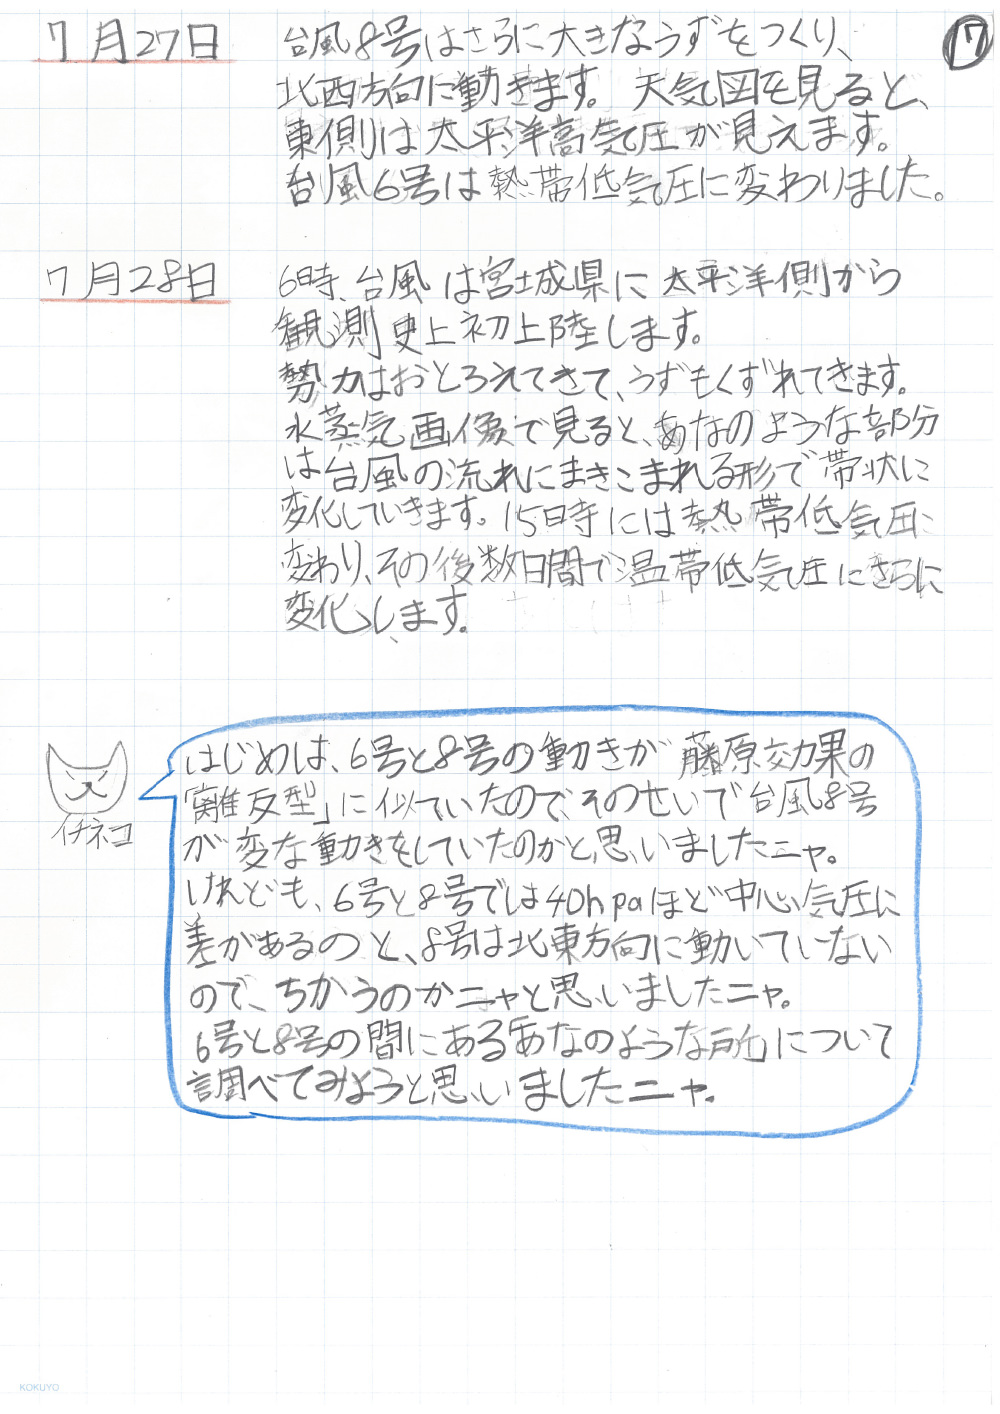 ⑰
7月27日
台風8号はさらに大きなうずをつくり、
北西方向に動きます。天気図を見ると、
東側は太平洋高気圧が見えます。
台風6号は熱帯低気圧に変わりました。
7月28日
6時、台風は宮城県に太平洋側から
観測史上初上陸します。
勢力はおとろえてきて、うずもくずれてきます。
水蒸気画像で見ると、あなのような部分
は台風の流れにまきこまれる形で帯状に
変化していきます。15時には熱帯低気圧に
変わり、その後数日間で温帯低気圧にさらに
変化します。
イチネコ
はじめは、6号と8号の動きが藤原効果の
「離反型」に似ていたので、そのせいで台風8号
が変な動きをしていたのかと思いましたニャ。
けれども、6号と8号では40hpaほど中心気圧に
差があるのと、8号は北東方向に動いていない
ので、ちがうのかニャと思いましたニャ。
6号と8号の間にある「あなのような所」について
調べてみようと思いましたニャ。
KOKUYO